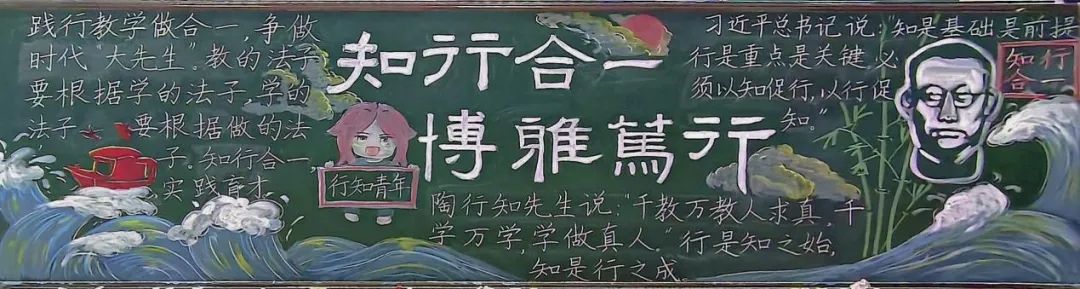 践行教学做合一,争做
时代“大先生”。教的法子
要根据学的法子,学的
法子、要根据做的法
子。知行合一
实践育才
知行合一
博雅篤行
行知青年
习近平总书记说:“知是基础是前提
行是重点是关键,必
须以知促行,以行促
知。”
知行
合一
陶行知先生说:“千教万教人求真,千
学万学,学做真人。”行是知之始,
知是行之成。